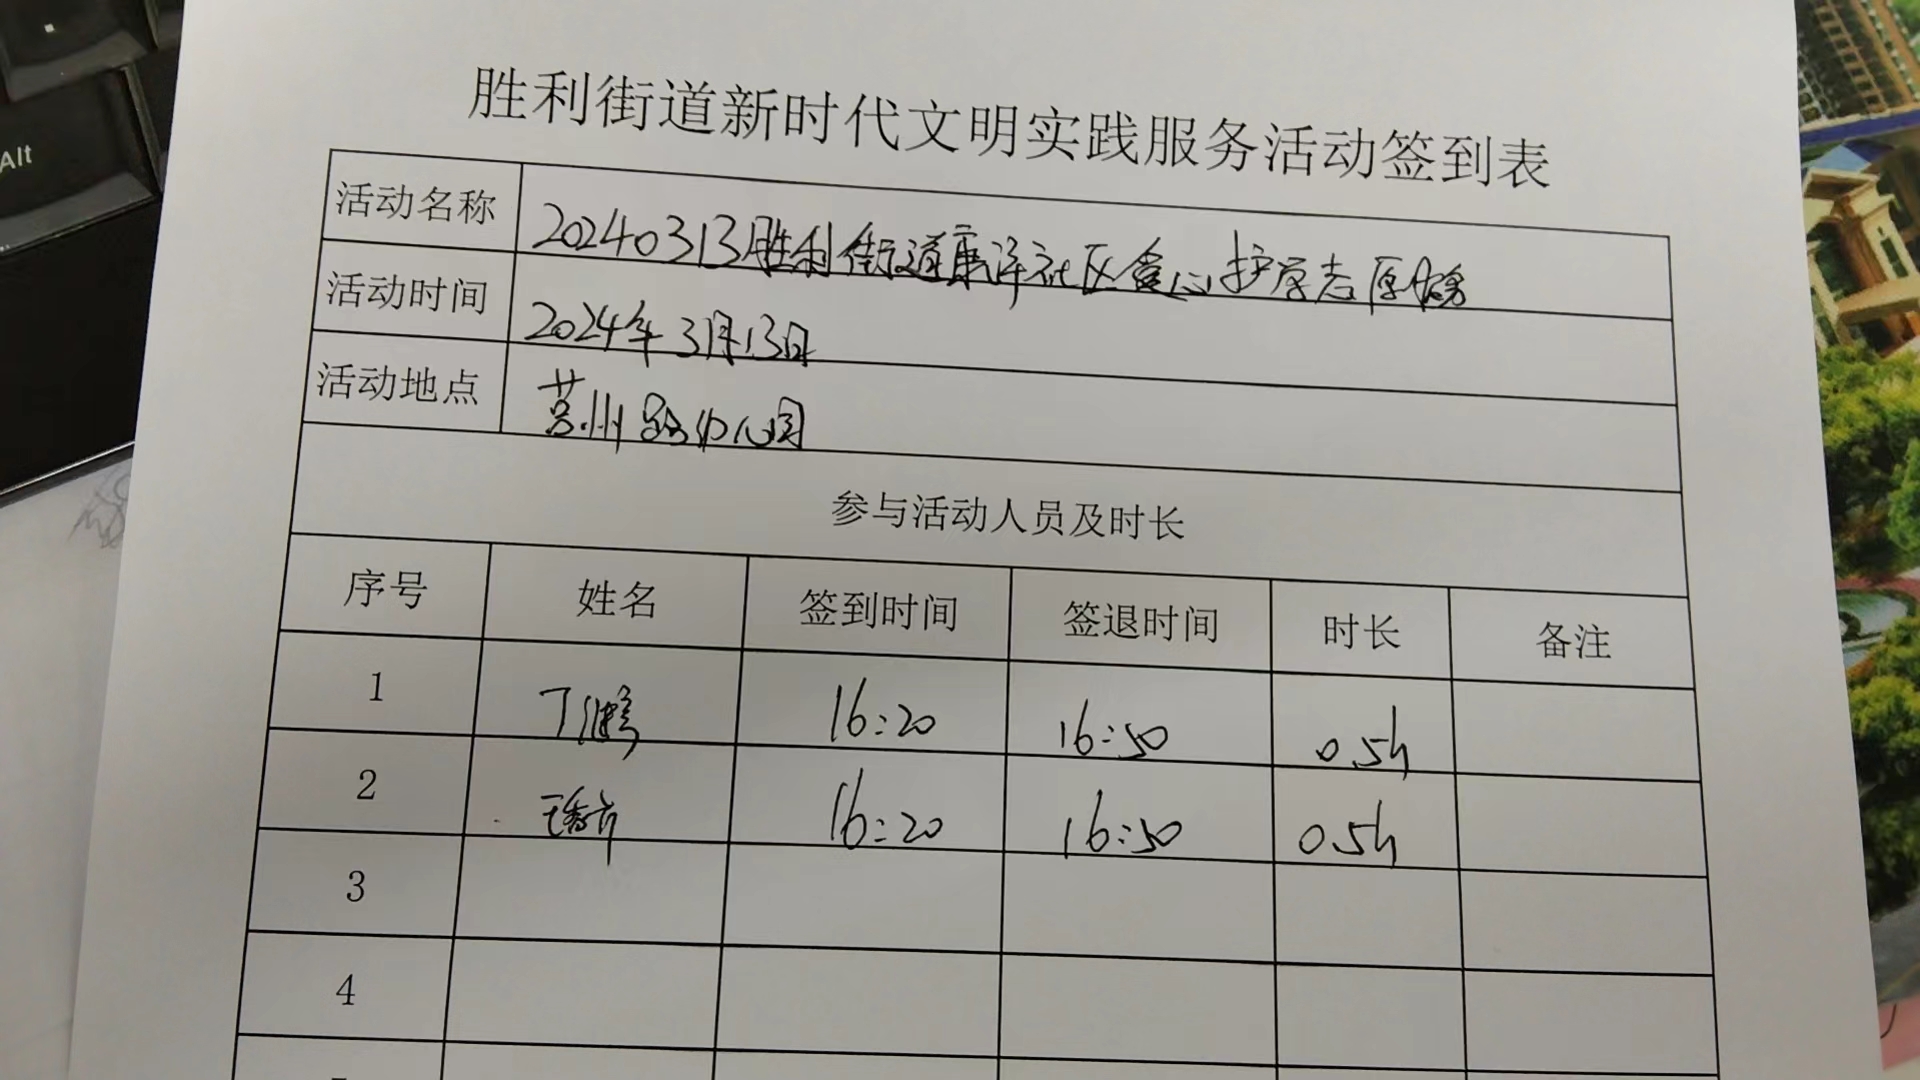 Alt
胜利街道新时代文明实践服务活动签到表
活动名称 20240313胜利街道康泽社区爱心护学志愿服务
活动时间 2024年3月13日
活动地点 苏州路幼儿园
参与活动人员及时长
序号 姓名 签到时间 签退时间 时长 备注
1 丁继 16:20 16:50 0.5h
2 王 16:20 16:50 0.5h
3
4